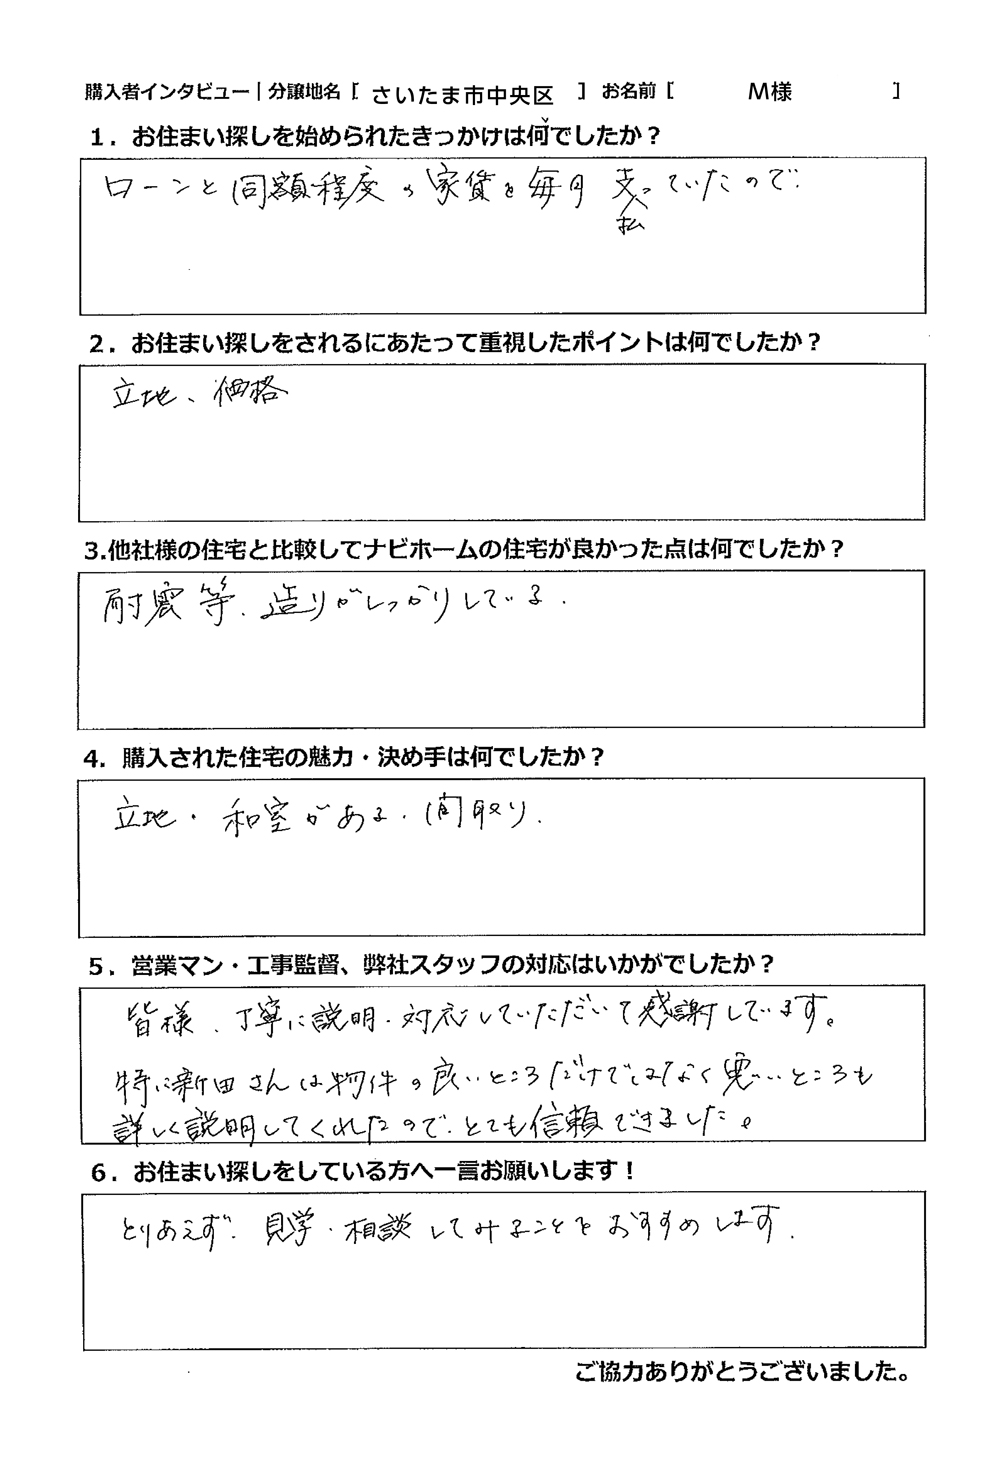 購入者インタビュー｜分譲地名［ さいたま市中央区 ］ お名前［ M様 ］
１．お住まい探しを始められたきっかけは何でしたか？
ローンと同額程度の家賃を毎月支払っていたので.
２．お住まい探しをされるにあたって重視したポイントは何でしたか？
立地、価格
3.他社様の住宅と比較してナビホームの住宅が良かった点は何でしたか？
耐震等、造りがしっかりしている.
４．購入された住宅の魅力・決め手は何でしたか？
立地・和室がある・間取り.
５．営業マン・工事監督、弊社スタッフの対応はいかがでしたか？
皆様、丁寧に説明・対応していただいて感謝しています。
特に新田さんは物件の良いところだけではなく悪いところも
詳しく説明してくれたので、とても信頼できました。
６．お住まい探しをしている方へ一言お願いします！
とりあえず、見学・相談してみることをおすすめします.
ご協力ありがとうございました。